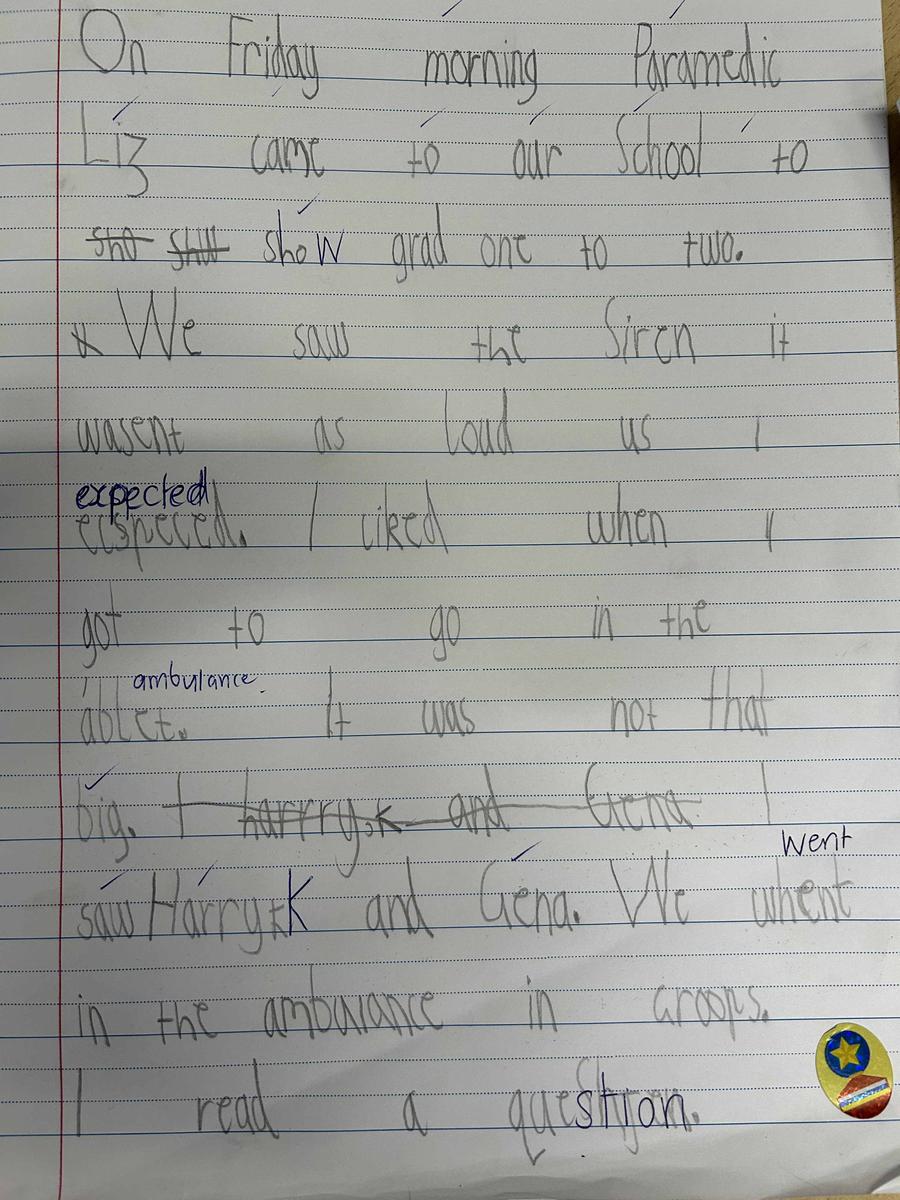 On Friday morning Paramedic
Liz came to our School to
sho shw show grad one to two.
* We saw the Siren it
wasent as loud us I
expected
ecspeced. I liked when I
got to go in the
ambulance.
ablet. It was not that
big. I harrry.k and Gena I
went
saw Harry.K and Gena. We whent
in the ambulance in Groops.
I read a question.